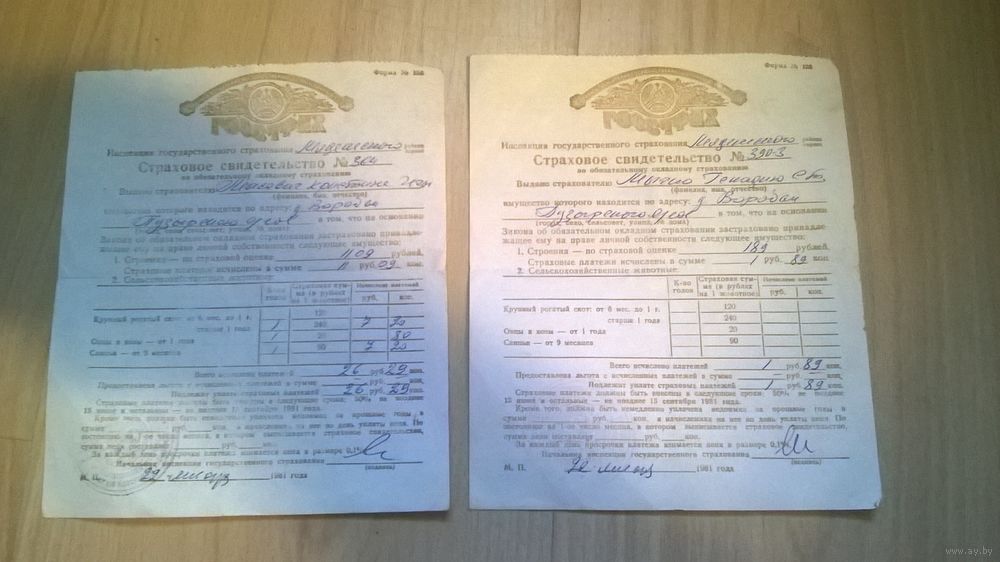 Форма № 128
ГОССТРАХ
Инспекция государственного страхования
Страховое свидетельство №
по обязательному окладному страхованию
Выдано страхователю
(фамилия, имя, отчество)
имущество которого находится по адресу: д.
в том, что на основании
(город, село, сельсовет, улица, № дома)
Закона об обязательном окладном страховании застраховано принадле-
жащее ему на праве личной собственности следующее имущество:
1. Строения — по страховой оценке 1109 рублей,
Страховые платежи исчислены в сумме руб. 09 коп.
2. Сельскохозяйственные животные:
К-во голов Страховая сум-ма (в рублях на 1 животное) Исчислено платежей
руб. коп.
Крупный рогатый скот: от 6 мес. до 1 г. 120
старше 1 года 1 240 7 20
Овцы и козы — от 1 года 1 20 80
Свиньи — от 9 месяцев 1 90 7 20
Всего исчислено платежей 26 руб. 29 коп.
Предоставлена льгота с исчисленных платежей в сумме — руб. — коп.
Подлежит уплате страховых платежей 26 руб. 29 коп.
Страховые платежи должны быть внесены в следующие сроки: 50% не позднее
15 июня и остальные — не позднее 15 сентября 1981 года.
Кроме того, должна быть немедленно уплачена недоимка за прошлые годы в
сумме руб. коп. и начисленная на нее по день уплаты пеня. По
состоянию на 1-ое число месяца, в котором выписывается страховое свидетельство,
сумма пени составляет руб. коп.
За каждый день просрочки платежа взимается пеня в размере 0,1%.
Начальник инспекции государственного страхования
(подпись)
М. П. 22 1981 года
Форма № 128
ГОССТРАХ
Инспекция государственного страхования
Страховое свидетельство № 390-3
по обязательному окладному страхованию
Выдано страхователю
(фамилия, имя, отчество)
имущество которого находится по адресу: д.
в том, что на основании
(город, село, сельсовет, улица, № дома)
Закона об обязательном окладном страховании застраховано принадле-
жащее ему на праве личной собственности следующее имущество:
1. Строения — по страховой оценке 189 рублей,
Страховые платежи исчислены в сумме 1 руб. 89 коп.
2. Сельскохозяйственные животные:
К-во голов Страховая сум-ма (в рублях на 1 животное) Исчислено платежей
руб. коп.
Крупный рогатый скот: от 6 мес. до 1 г. 120
старше 1 года 240
Овцы и козы — от 1 года 20
Свиньи — от 9 месяцев 90
Всего исчислено платежей 1 руб. 89 коп.
Предоставлена льгота с исчисленных платежей в сумме — руб. — коп.
Подлежит уплате страховых платежей 1 руб. 89 коп.
Страховые платежи должны быть внесены в следующие сроки: 50% не позднее
15 июня и остальные — не позднее 15 сентября 1981 года.
Кроме того, должна быть немедленно уплачена недоимка за прошлые годы в
сумме руб. коп. и начисленная на нее по день уплаты пеня. По
состоянию на 1-ое число месяца, в котором выписывается страховое свидетельство,
сумма пени составляет руб. коп.
За каждый день просрочки платежа взимается пеня в размере 0,1%.
Начальник инспекции государственного страхования
(подпись)
М. П. 22 1981 года
www.ay.by